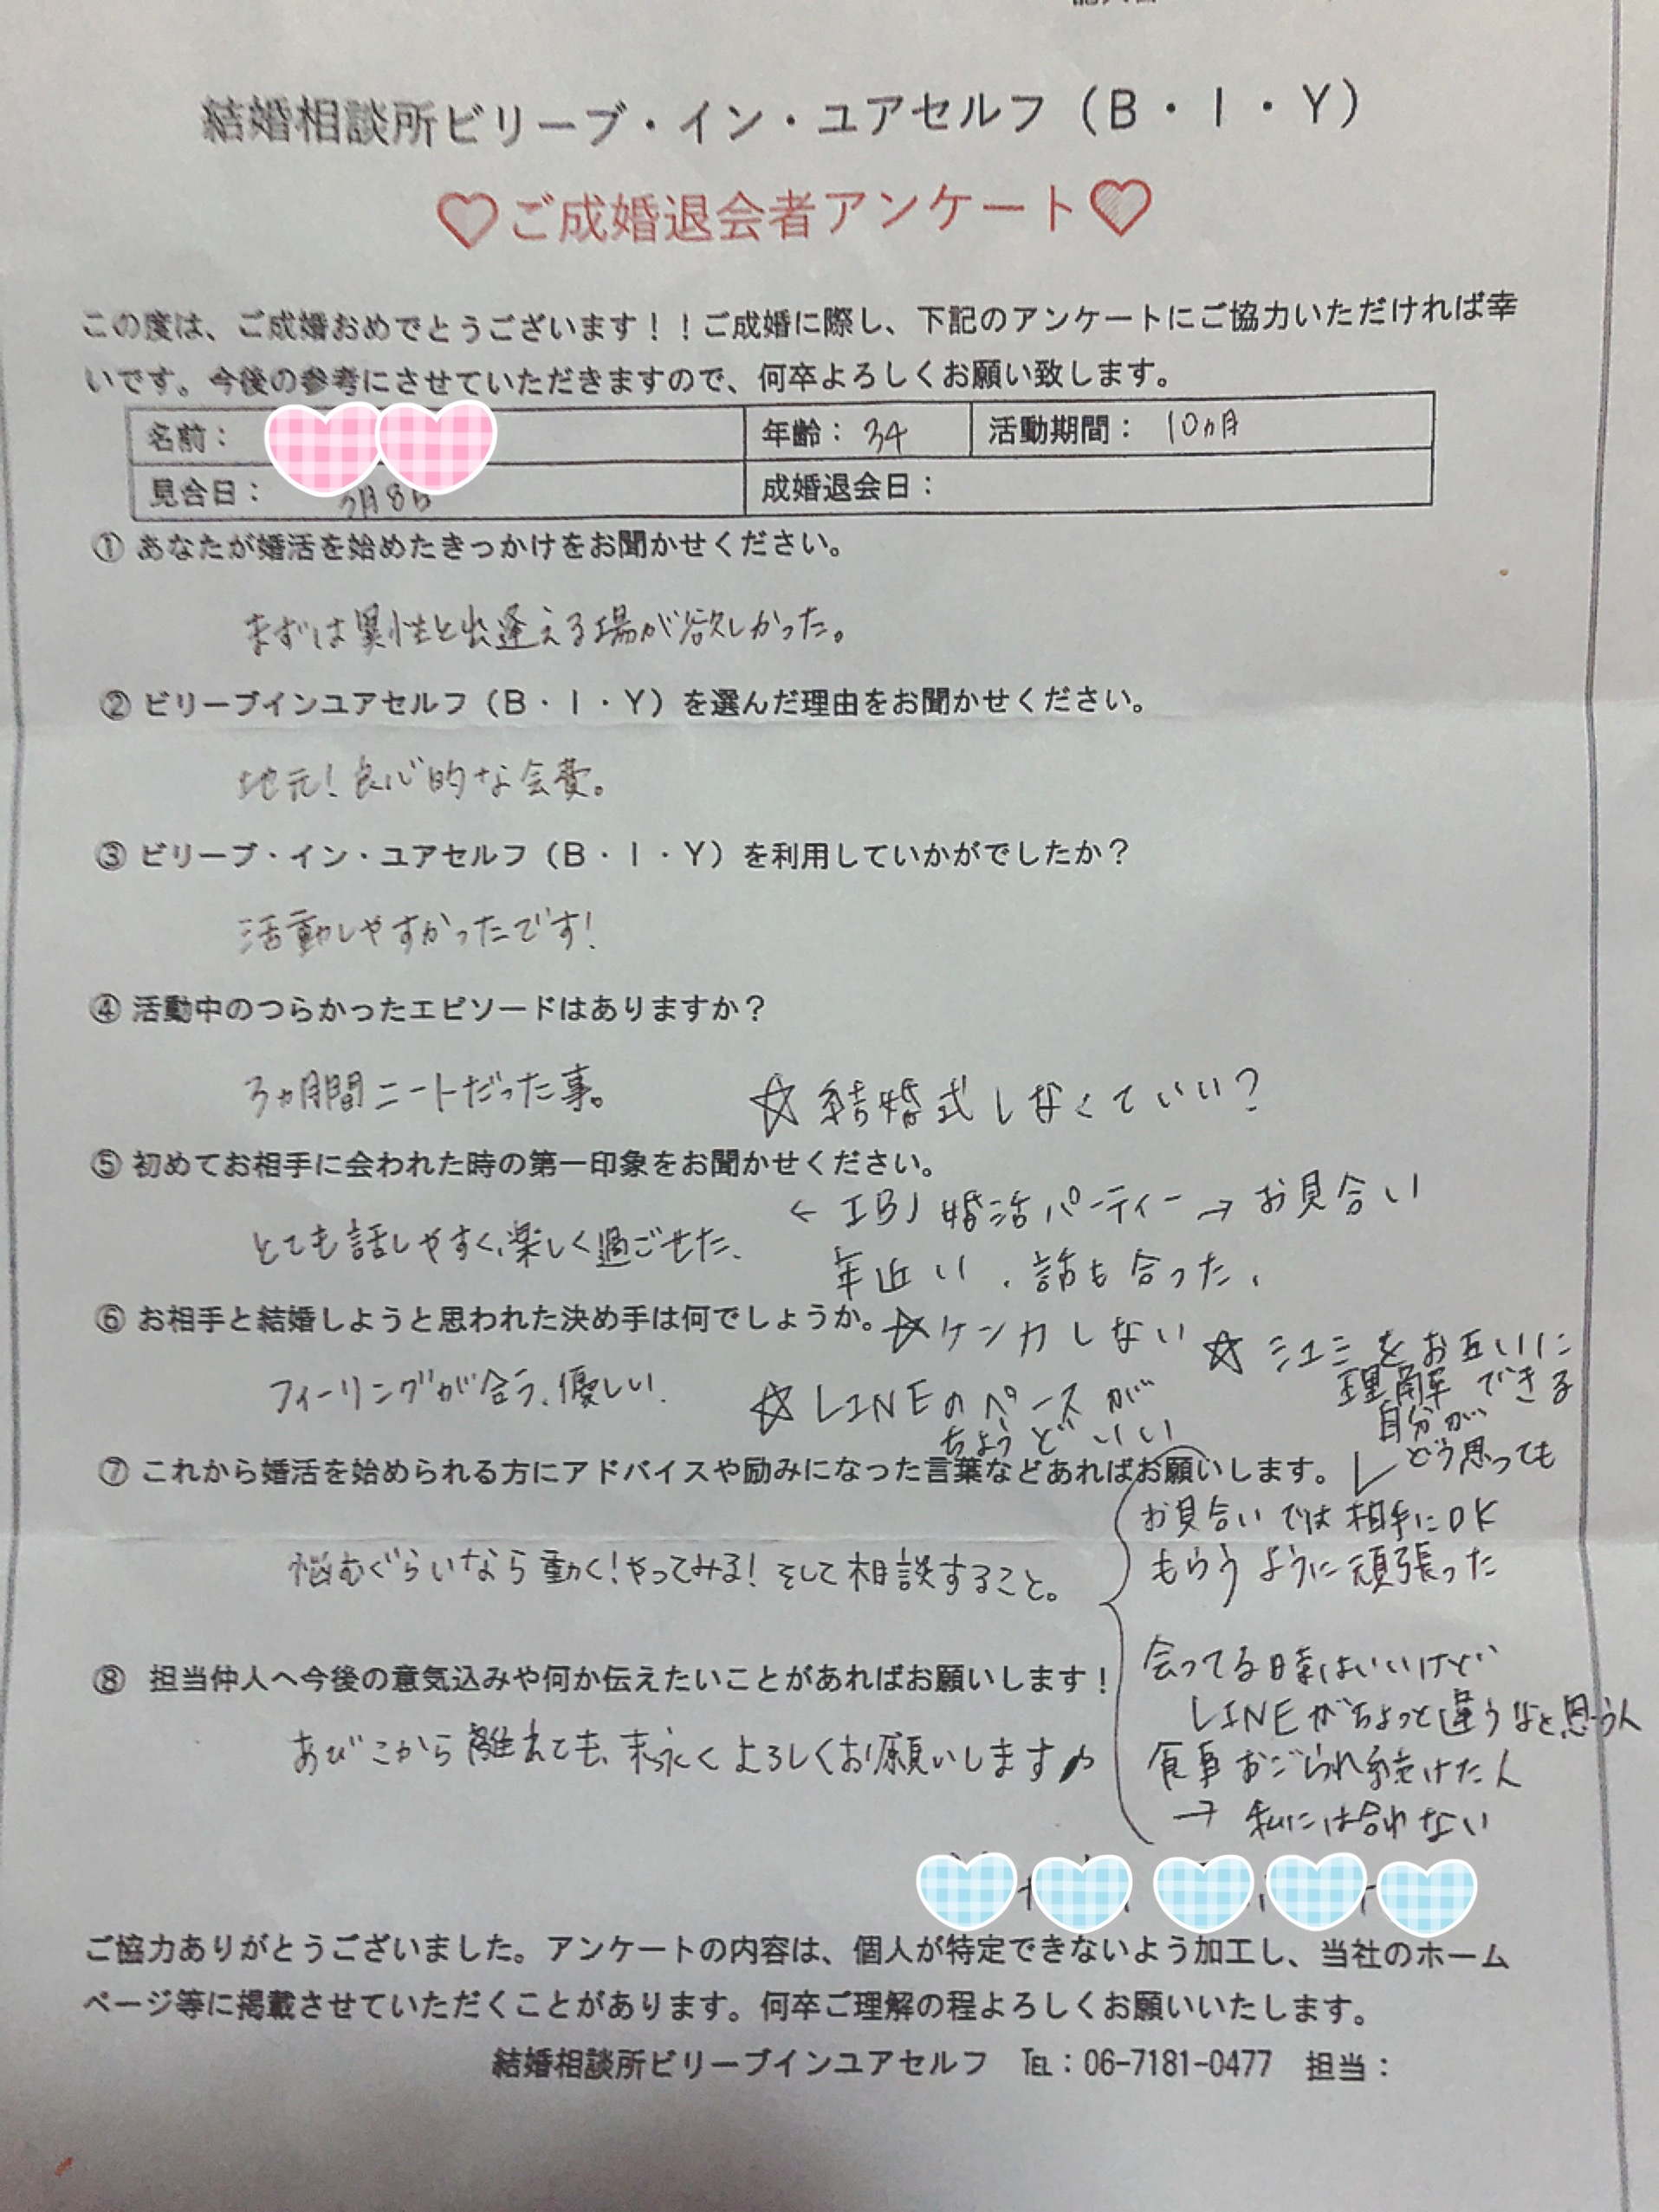 結婚相談所ビリーブ・イン・ユアセルフ（B・I・Y）
♡ご成婚退会者アンケート♡
この度は、ご成婚おめでとうございます！！ご成婚に際し、下記のアンケートにご協力いただければ幸
いです。今後の参考にさせていただきますので、何卒よろしくお願い致します。
名前： 年齢：34 活動期間：10ヵ月
見合日： 月8日 成婚退会日：
① あなたが婚活を始めたきっかけをお聞かせください。
まずは異性と出逢える場が欲しかった。
② ビリーブインユアセルフ（B・I・Y）を選んだ理由をお聞かせください。
地元！良心的な会費。
③ ビリーブ・イン・ユアセルフ（B・I・Y）を利用していかがでしたか？
活動しやすかったです！
④ 活動中のつらかったエピソードはありますか？
3ヵ月間ニートだった事。
☆結婚式しなくていい？
⑤ 初めてお相手に会われた時の第一印象をお聞かせください。
← IBJ 婚活パーティー → お見合い
とても話しやすく、楽しく過ごせた、
年近い、話も合った、
⑥ お相手と結婚しようと思われた決め手は何でしょうか。
☆ケンカしない
☆シュミをお互いに
理解できる
フィーリングが合う、優しい、
☆LINEのペースが
ちょうどいい
自分が
どう思っても
⑦ これから婚活を始められる方にアドバイスや励みになった言葉などあればお願いします。
お見合いでは相手にOK
もらうように頑張った
悩むぐらいなら動く！やってみる！そして相談すること。
会ってる時はいいけど
LINEがちょっと違うなと思う人
食事おごられ続けた人
→ 私には合わない
⑧ 担当仲人へ今後の意気込みや何か伝えたいことがあればお願いします！
あびこから離れても、末永くよろしくお願いします♪
ご協力ありがとうございました。アンケートの内容は、個人が特定できないよう加工し、当社のホーム
ページ等に掲載させていただくことがあります。何卒ご理解の程よろしくお願いいたします。
結婚相談所ビリーブインユアセルフ ℡：06-7181-0477 担当：